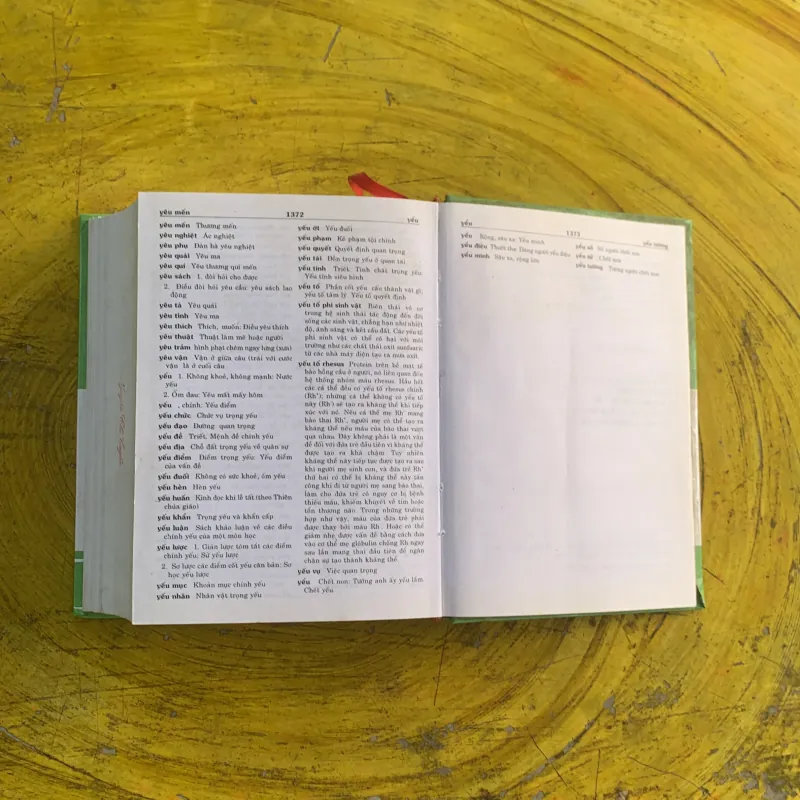 yêu mến 1372 yểu
yêu mến Thương mến
yêu nghiệt Ác nghiệt
yêu phụ Đàn bà yêu nghiệt
yêu quái Yêu ma
yêu quí Yêu thương quí mến
yêu sách 1. đòi hỏi cho được
2. Điều đòi hỏi yêu cầu: yêu sách lao
động
yêu tà Yêu quái
yêu tinh Yêu ma
yêu thích Thích, muốn: Điều yêu thích
yêu thuật Thuật làm mê hoặc người
yêu trảm hình phạt chém ngay hông (xưa)
yêu vận Vận ở giữa câu (trái với cước
vận là ở cuối câu
yếu 1. Không khoẻ, không mạnh: Nước
yếu
2. Ốm đau: Yếu mất mấy hôm
yếu , chính: Yếu điểm
yếu chức Chức vụ trọng yếu
yếu đạo Đường quan trọng
yếu đề Triết. Mệnh đề chính yếu
yếu địa Chỗ đất trọng yếu về quân sự
yếu điểm Điểm trọng yếu: Yếu điểm
của vấn đề
yếu đuối Không có sức khoẻ, ốm yếu
yếu hèn Hèn yếu
yếu huấn Kinh đọc khi lễ tất (theo Thiên
chúa giáo)
yếu khẩn Trọng yếu và khẩn cấp
yếu luận Sách khảo luận về các điều
chính yếu của một môn học
yếu lược 1. Giản lược tóm tắt các điểm
chính yếu: Sử yếu lược
2. Sơ lược các điểm cốt yếu căn bản: Sơ
học yếu lược
yếu mục Khoản mục chính yếu
yếu nhân Nhân vật trọng yếu
yếu ớt Yếu đuối
yếu phạm Kẻ phạm tội chính
yếu quyết Quyết định quan trọng
yếu tái Đồn trọng yếu ở quan tái
yếu tính Triết. Tính chất trọng yếu
Yếu tính siêu hình
yếu tố Phần cốt yếu cấu thành vật gì,
yếu tố tâm lý. Yếu tố quyết định
yếu tố phi sinh vật Biến thái vô cơ
trong hệ sinh thái tác động đến đời
sống các sinh vật, chẳng hạn như nhiệt
độ, ánh sáng và kết cấu đất. Các yếu tố
phi sinh vật có thể có hại với môi
trường như các chất thải oxit sunfuaric
từ các nhà máy điện tạo ra mưa axit.
yếu tố rhesus Protein trên bề mặt tế
bào hồng cầu ở người, nó liên quan đến
hệ thống nhóm máu rhesus. Hầu hết
các cá thể đều có yếu tố rhesus chính
(Rh+); những cá thể không có yếu tố
này (Rh-) sẽ tạo ra kháng thể khi tiếp
xúc với nó. Nếu cá thể mẹ Rh- mang
bào thai Rh+, người mẹ có thể tạo ra
kháng thể nếu máu của bào thai vượt
qua nhau. Đây không phải là một vấn
đề đối với đứa trẻ đầu tiên vì kháng thể
được tạo ra khá chậm. Tuy nhiên
kháng thể này tiếp tục được tạo ra sau
khi người mẹ sinh con, và đứa trẻ Rh+
thứ hai có thể bị kháng thể này tấn
công khi đi từ người mẹ sang bào thai,
làm cho đứa trẻ có nguy cơ bị bệnh
thiếu máu, khiếm khuyết về tim hoặc
tổn thương não. Trong những trường
hợp như vậy, máu của đứa trẻ phải
được thay bởi máu Rh-. Hoặc có thể
giảm nhẹ được vấn đề bằng cách đưa
vào cơ thể mẹ globulin chống Rh ngay
sau lần mang thai đầu tiên để ngăn
chặn sự tạo thành kháng thể.
yếu vụ Việc quan trọng
yểu Chết non: Tướng anh ấy yểu lắm
Chết yểu
yểu 1373 yểu tướng
yểu Rộng, sâu xa: Yểu minh
yểu điệu Thướt tha: Dáng người yểu điệu
yểu minh Sâu xa, rộng lớn
yểu số Số người chết non
yểu tử Chết non
yểu tướng Tướng người chết non